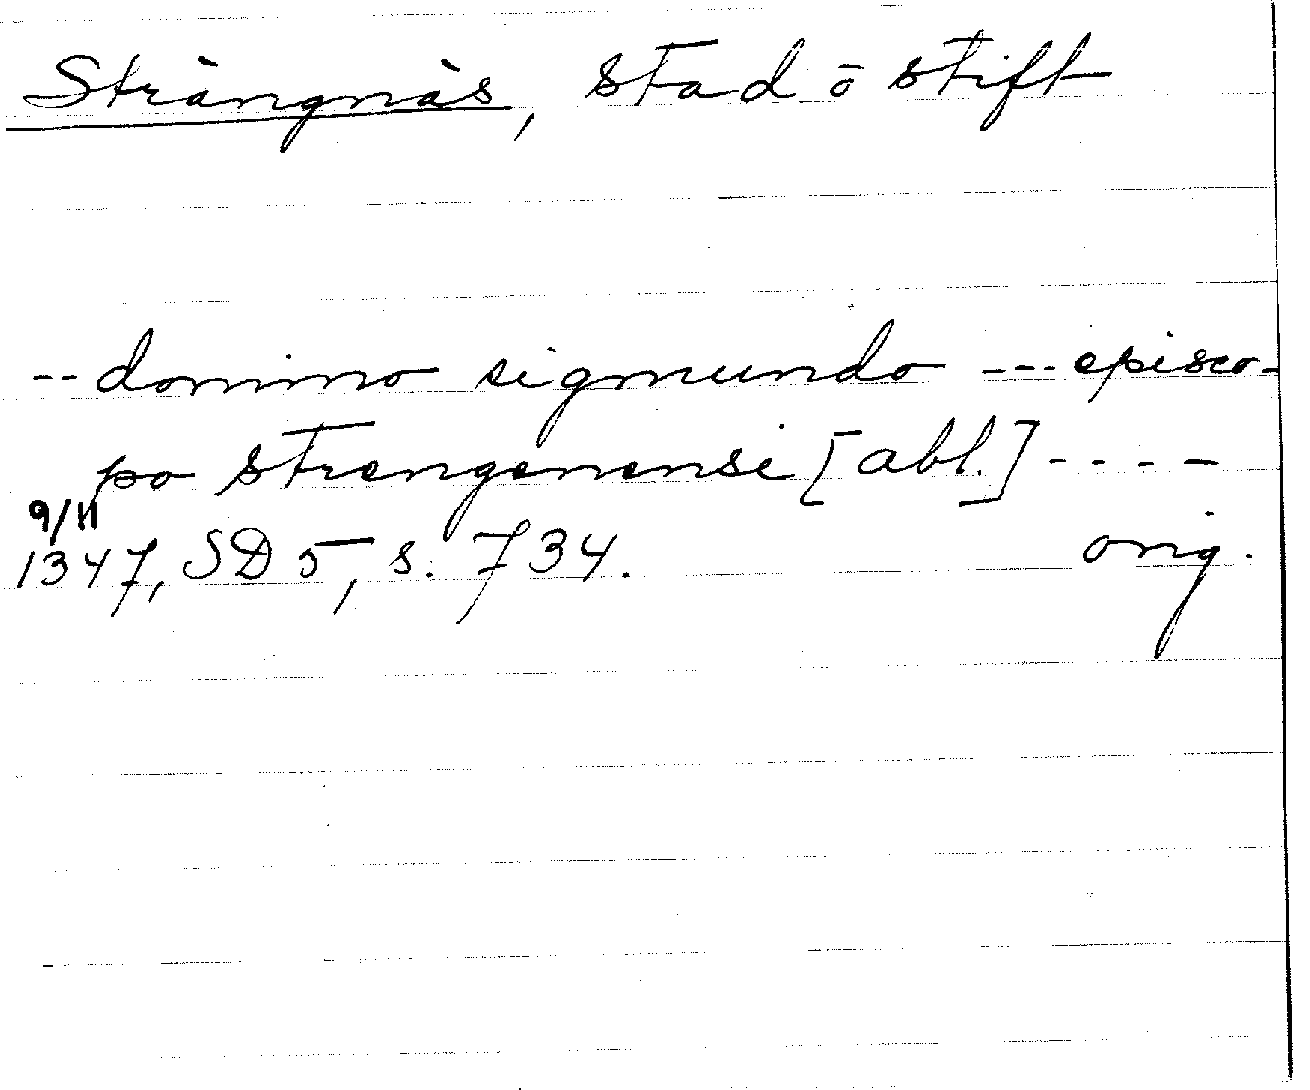 Strängnäs, stad ō stift
-- domino sigmundo --- episco-
po strengenensi [abl.] ----
9/11
1347, SD 5, s. 734. orig.